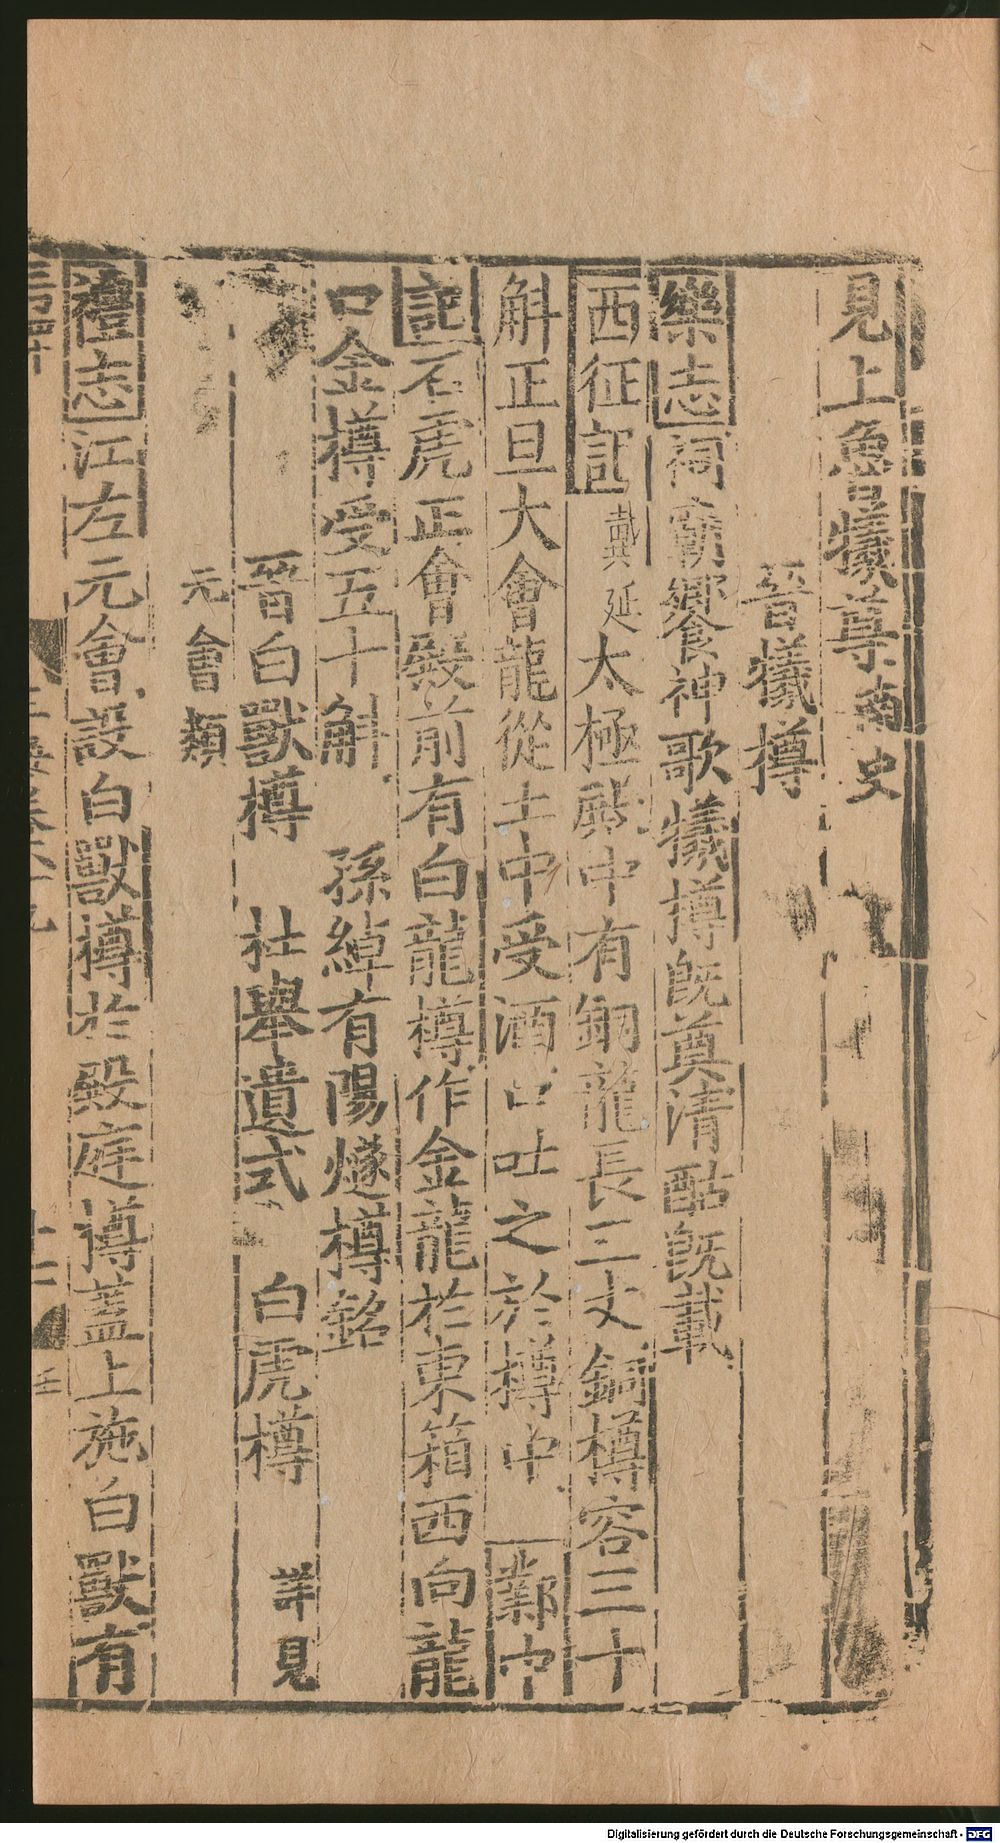 見上魯犧尊南史
晉犧樽
樂志祠廟饗神歌犧樽既奠清酤既載
西征記戴延太極殿中有銅龍長三丈銅樽容三十
斛正旦大會龍從土中受酒口吐之於樽中 鄴中
記石虎正會殿前有白龍樽作金龍於東箱西向龍
口金樽受五十斛 孫綽有陽燧樽銘
晉白獸樽 杜舉遺式 白虎樽 詳見
元會類
禮志江左元會設白獸樽於殿庭樽蓋上施白獸有
Digitalisierung gefördert durch die Deutsche Forschungsgemeinschaft - DFG